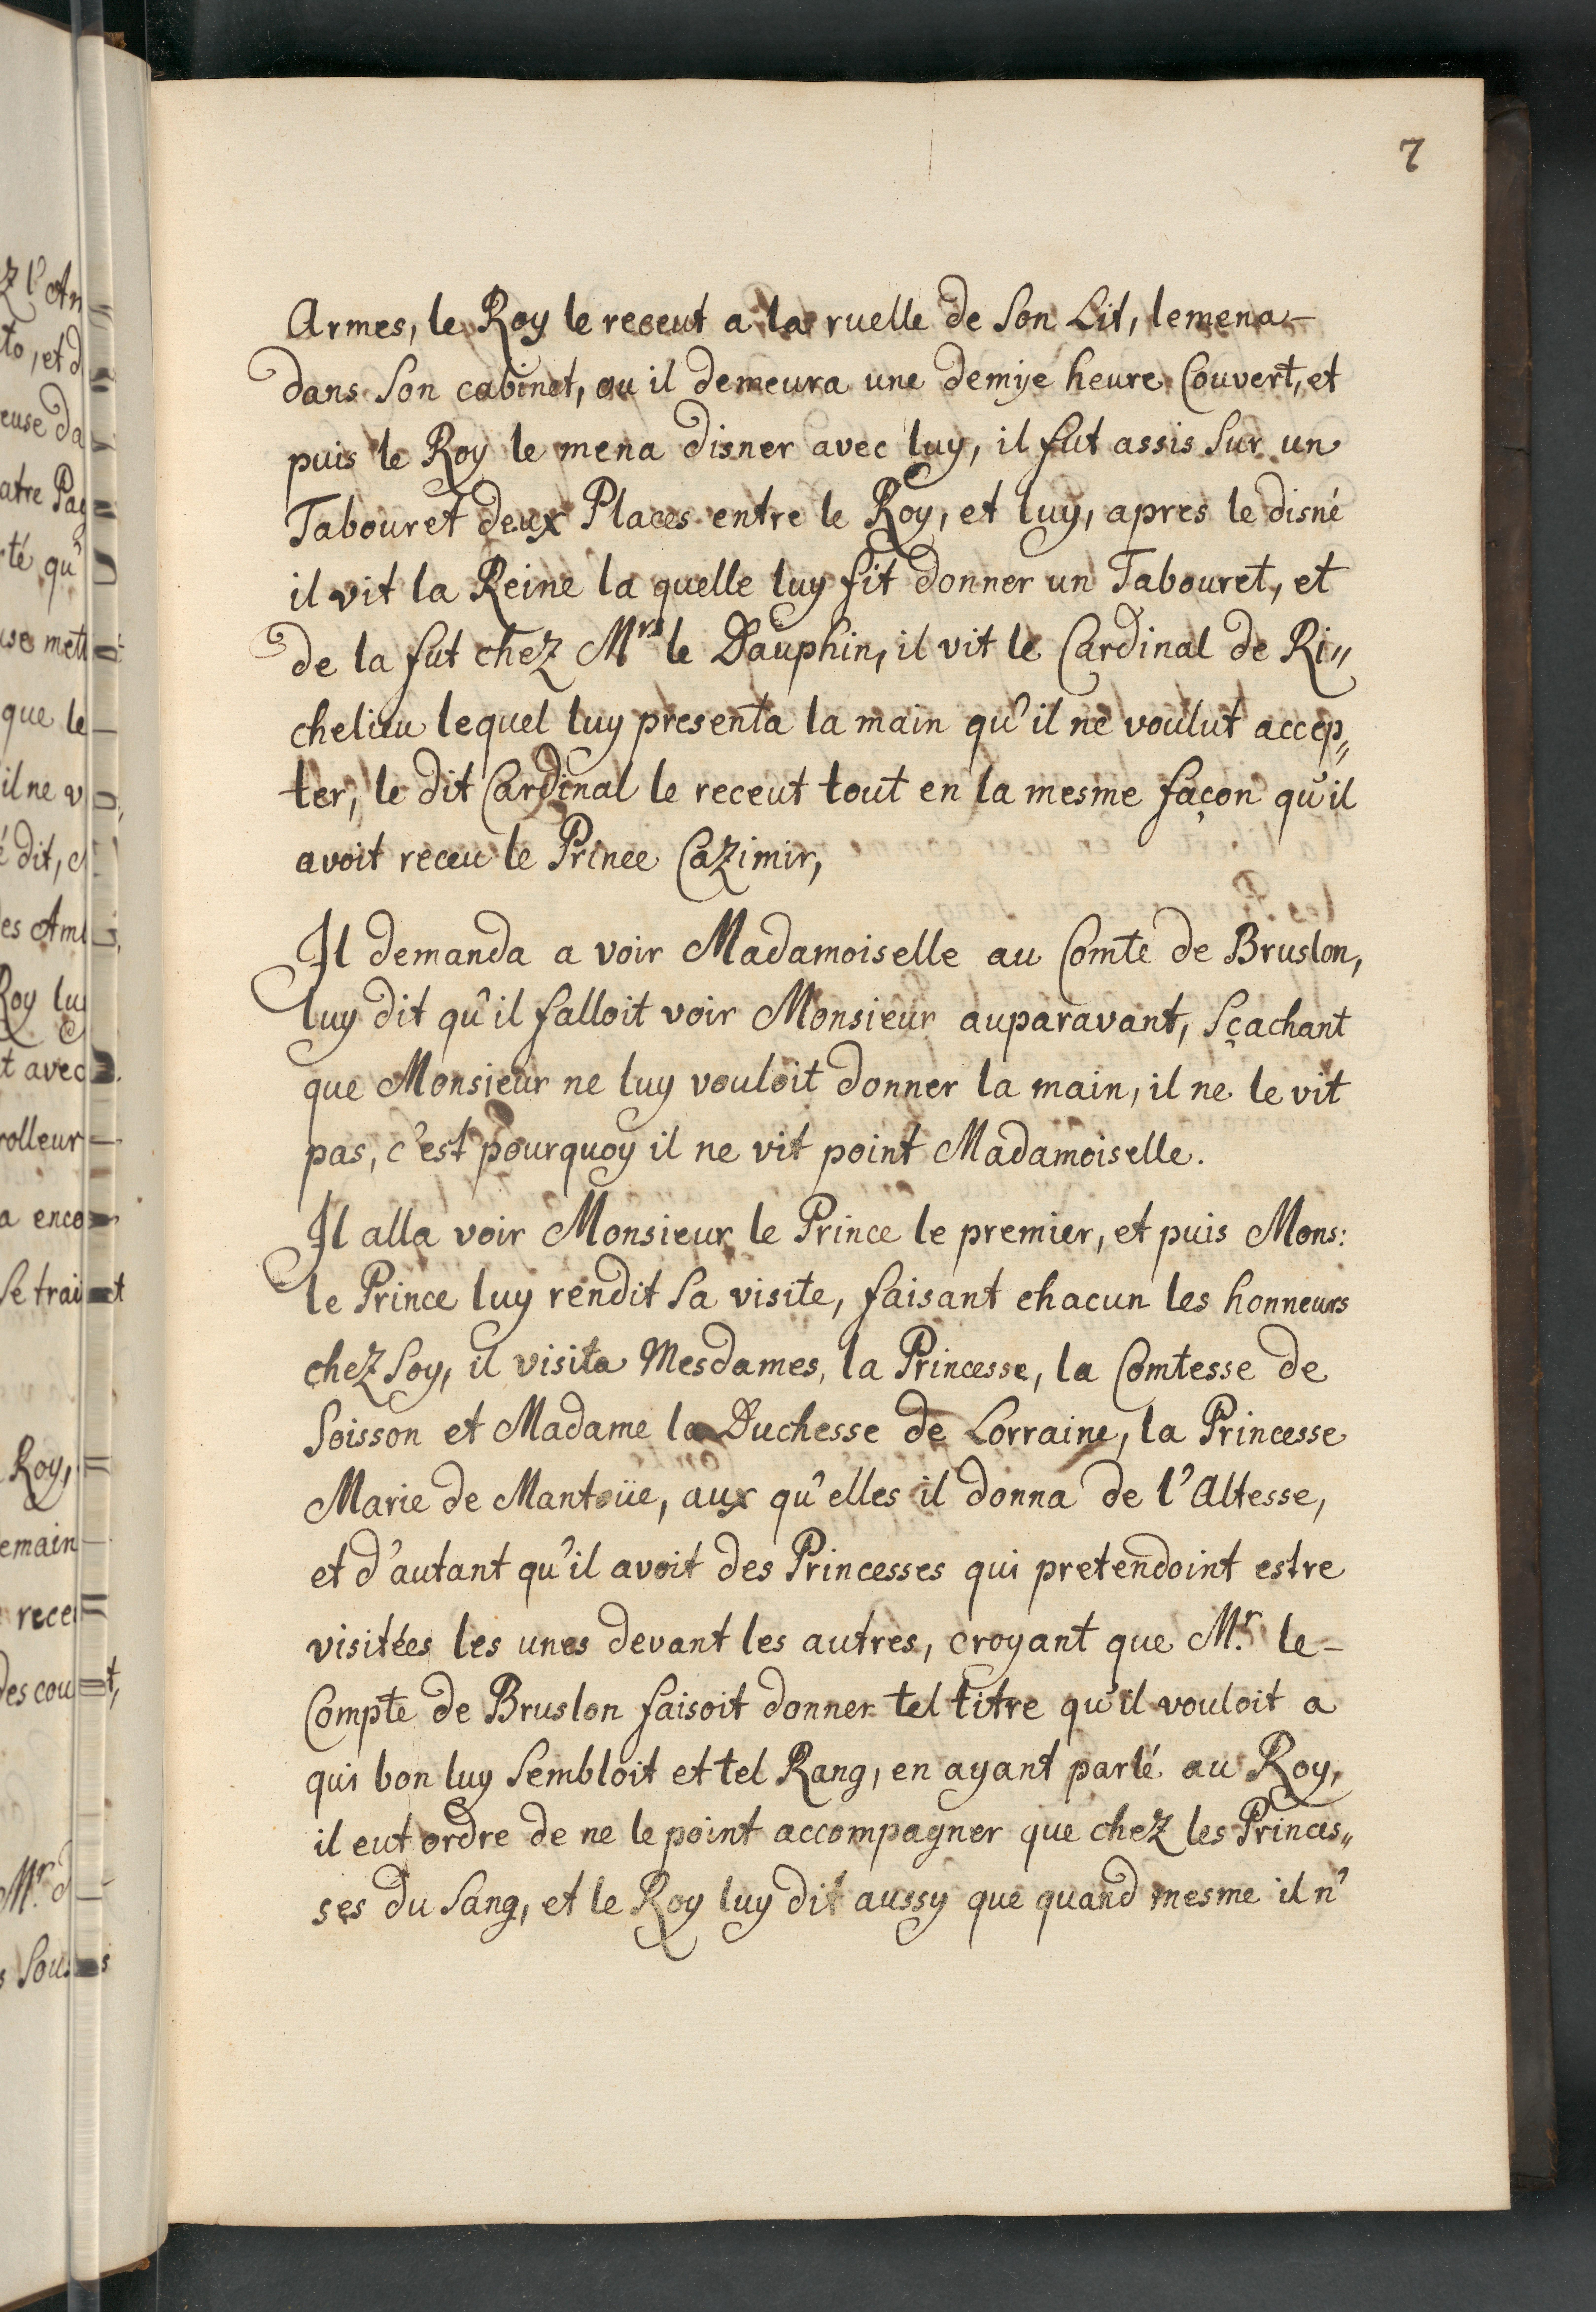 7
Armes, le Roy le receut a la ruelle de Son Lit, lemena-
dans Son cabinet, ou il demeura une demije heure Couvert, et
puis le Roy le mena disner avec luy, il fut assis Sur un
Tabouret deux Places entre le Roy, et luy, apres le disné
il vit la Reine la quelle luy fit donner un Tabouret, et
de la fut chez Mrs le Dauphin, il vit le Cardinal de Ri„
chelieu lequel luy presenta la main qu'il ne voulut accep„
ter, le dit Cardinal le receut tout en la mesme façon qu'il
avoit receu le Prince Cazimir,
Il demanda a voir Madamoiselle au Comte de Bruslon,
luy dit qu'il falloit voir Monsieur auparavant, Sçachant
que Monsieur ne luy vouloit donner la main, il ne le vit
pas, c'est pourquoy il ne vit point Madamoiselle.
Il alla voir Monsieur le Prince le premier, et puis Mons:
le Prince luy rendit Sa visite, faisant chacun les honneurs
chez Soy, il visita Mesdames, la Princesse, la Comtesse de
Soisson et Madame la Duchesse de Lorraine, la Princesse
Marie de Mantoüe, aux qu'elles il donna de l'Altesse,
et d'autant qu'il avoit des Princesses qui pretendoint estre
visitées les unes devant les autres, croyant que Mr. le-
Compte de Bruslon faisoit donner tel titre qu'il vouloit a
qui bon luy Sembloit et tel Rang, en ayant parlé au Roy,
il eut ordre de ne le point accompagner que chez les Princes„
ses du Sang, et le Roy luy dit aussy que quand mesme il n'